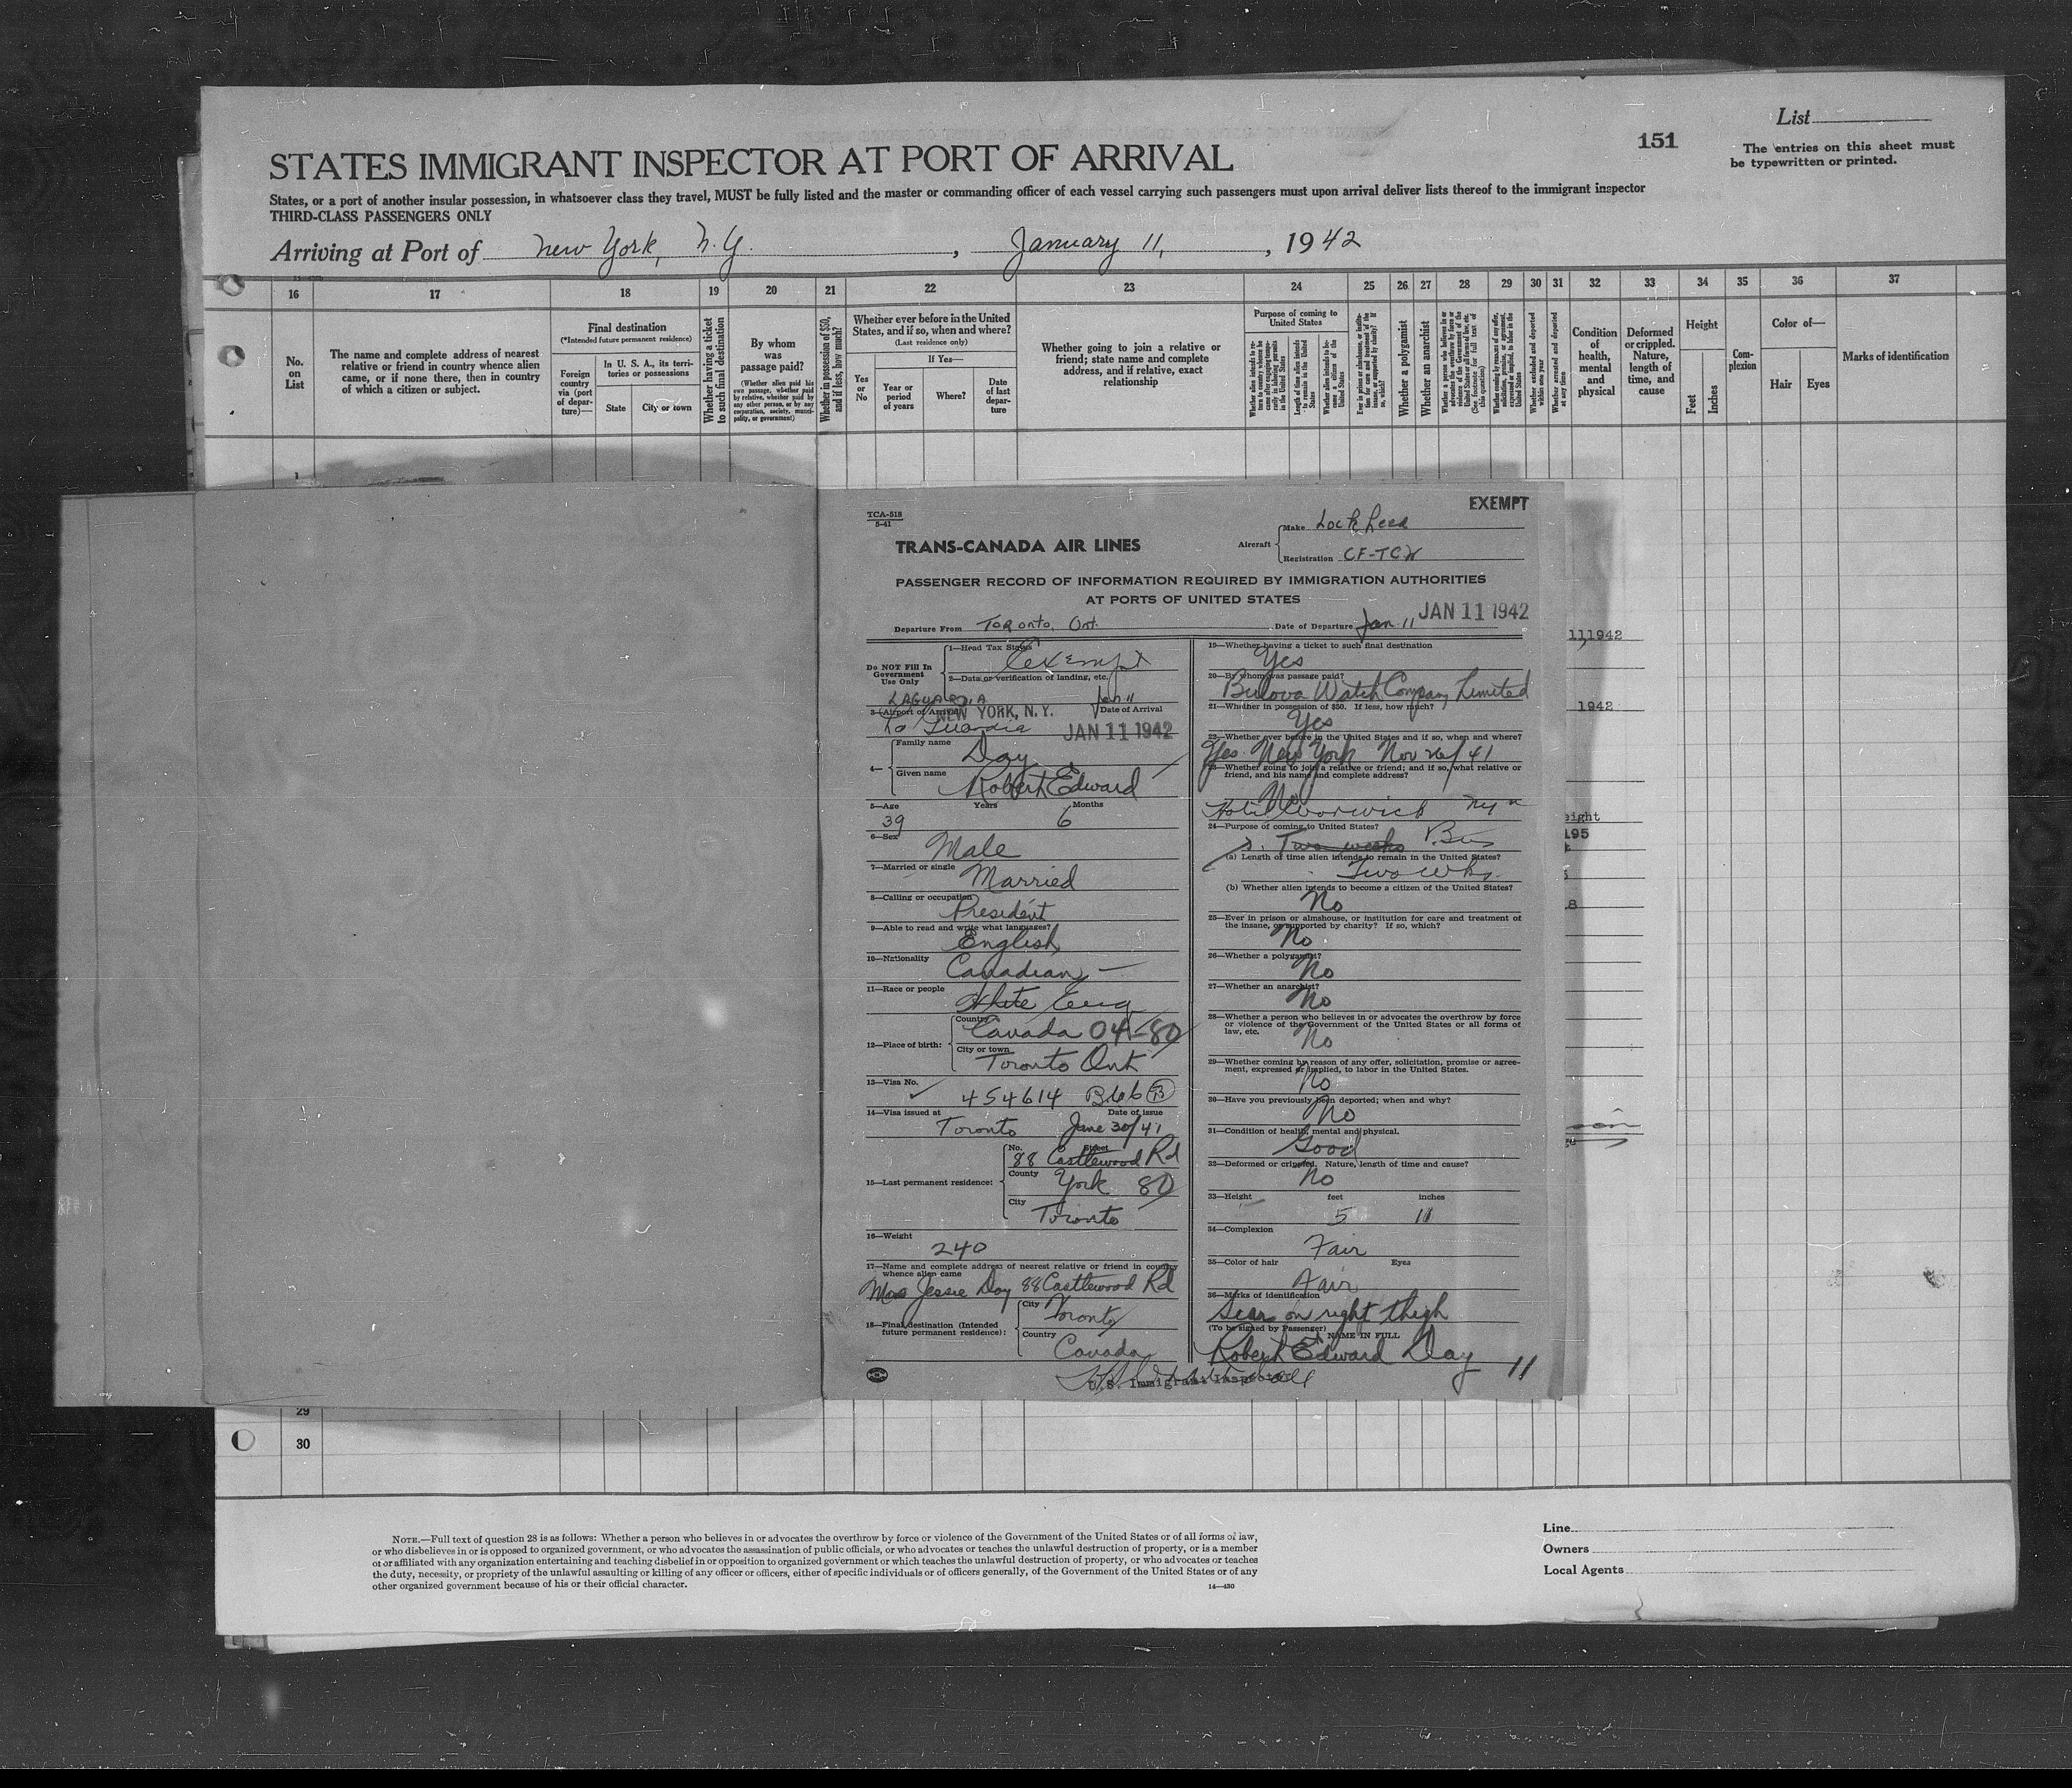 List
151
The entries on this sheet must
be typewritten or printed.
STATES IMMIGRANT INSPECTOR AT PORT OF ARRIVAL
States, or a port of another insular possession, in whatsoever class they travel, MUST be fully listed and the master or commanding officer of each vessel carrying such passengers must upon arrival deliver lists thereof to the immigrant inspector
THIRD-CLASS PASSENGERS ONLY
Arriving at Port of New York, N.Y. , January 11, , 1942
16 17 18 19 20 21 22 23 24 25 26 27 28 29 30 31 32 33 34 35 36 37
No. on List
The name and complete address of nearest
relative or friend in country whence alien
came, or if none there, then in country
of which a citizen or subject.
Final destination
(*Intended future permanent residence)
Foreign
country
via (port
of depar-
ture)—
In U. S. A., its terri-
tories or possessions
State City or town
Whether having a ticket
to such final destination
By whom
was
passage paid?
(Whether alien paid his
own passage, whether paid
by relative, whether paid by
any other person, or by any
corporation, society, munici-
pality, or government)
Whether in possession of $50,
and if less, how much?
Whether ever before in the United
States, and if so, when and where?
(Last residence only)
Yes
or
No
If Yes—
Year or
period
of years
Where?
Date
of last
depar-
ture
Whether going to join a relative or
friend; state name and complete
address, and if relative, exact
relationship
Purpose of coming to
United States
Length of time alien intends
to remain in the United
States
Whether a polygamist
Whether an anarchist
Whether arrested and deported
at any time
Condition
of
health,
mental
and
physical
Deformed
or crippled.
Nature,
length of
time, and
cause
Height
Feet Inches
Com-
plexion
Color of—
Hair Eyes
Marks of identification
TCA-518
5-41
EXEMPT
TRANS-CANADA AIR LINES
Aircraft
Make Lockheed
Registration CF-TCW
PASSENGER RECORD OF INFORMATION REQUIRED BY IMMIGRATION AUTHORITIES
AT PORTS OF UNITED STATES
Departure From Toronto, Ont. Date of Departure Jan 11 JAN 11 1942
Do NOT Fill In
Government
Use Only
1—Head Tax Status
exempt
2—Data or verification of landing, etc.
LAGUARDIA Jan 11
3—(Airport of Arrival) NEW YORK, N. Y. Date of Arrival
La Guardia JAN 11 1942
4—
Family name
Day
Given name
Robert Edward
5—Age Years Months
39 6
6—Sex
Male
7—Married or single
Married
8—Calling or occupation
President
9—Able to read and write what languages?
English
10—Nationality
Canadian
11—Race or people
White Eng
12—Place of birth:
Country
Canada 04-80
City or town
Toronto Ont
13—Visa No.
454614 B66 B
14—Visa issued at Date of issue
Toronto June 30/41
15—Last permanent residence:
No. Street
88 Castlewood Rd
County
York 80
City
Toronto
16—Weight
240
17—Name and complete address of nearest relative or friend in country
whence alien came
Mrs Jessie Day 88 Castlewood Rd
18—Final destination (Intended
future permanent residence):
City
Toronto
Country
Canada
19—Whether having a ticket to such final destination
Yes
20—By whom was passage paid?
Bulova Watch Company Limited
21—Whether in possession of $50. If less, how much?
Yes
22—Whether ever before in the United States and if so, when and where?
Yes. New York Nov 26/41
23—Whether going to join a relative or friend; and if so, what relative or
friend, and his name and complete address?
No
Hotel Warwick
24—Purpose of coming to United States?
Two weeks Bus
(a) Length of time alien intends to remain in the United States?
Two Wks.
(b) Whether alien intends to become a citizen of the United States?
No
25—Ever in prison or almshouse, or institution for care and treatment of
the insane, or supported by charity? If so, which?
No
26—Whether a polygamist?
No
27—Whether an anarchist?
No
28—Whether a person who believes in or advocates the overthrow by force
or violence of the Government of the United States or all forms of
law, etc.
No
29—Whether coming by reason of any offer, solicitation, promise or agree-
ment, expressed or implied, to labor in the United States.
No
30—Have you previously been deported; when and why?
No
31—Condition of health, mental and physical.
Good
32—Deformed or crippled. Nature, length of time and cause?
No
33—Height feet inches
5 11
34—Complexion
Fair
35—Color of hair Eyes
Fair
36—Marks of identification
Scar on right thigh
(To be signed by Passenger) NAME IN FULL
Robert Edward Day 11
U.S. Immigrant Inspector
111942
1942
eight
195
8
29
30
NOTE.—Full text of question 28 is as follows: Whether a person who believes in or advocates the overthrow by force or violence of the Government of the United States or of all forms of law,
or who disbelieves in or is opposed to organized government, or who advocates the assassination of public officials, or who advocates or teaches the unlawful destruction of property, or is a member
of or affiliated with any organization entertaining and teaching disbelief in or opposition to organized government or which teaches the unlawful destruction of property, or who advocates or teaches
the duty, necessity, or propriety of the unlawful assaulting or killing of any officer or officers, either of specific individuals or of officers generally, of the Government of the United States or of any
other organized government because of his or their official character.
14—430
Line
Owners
Local Agents